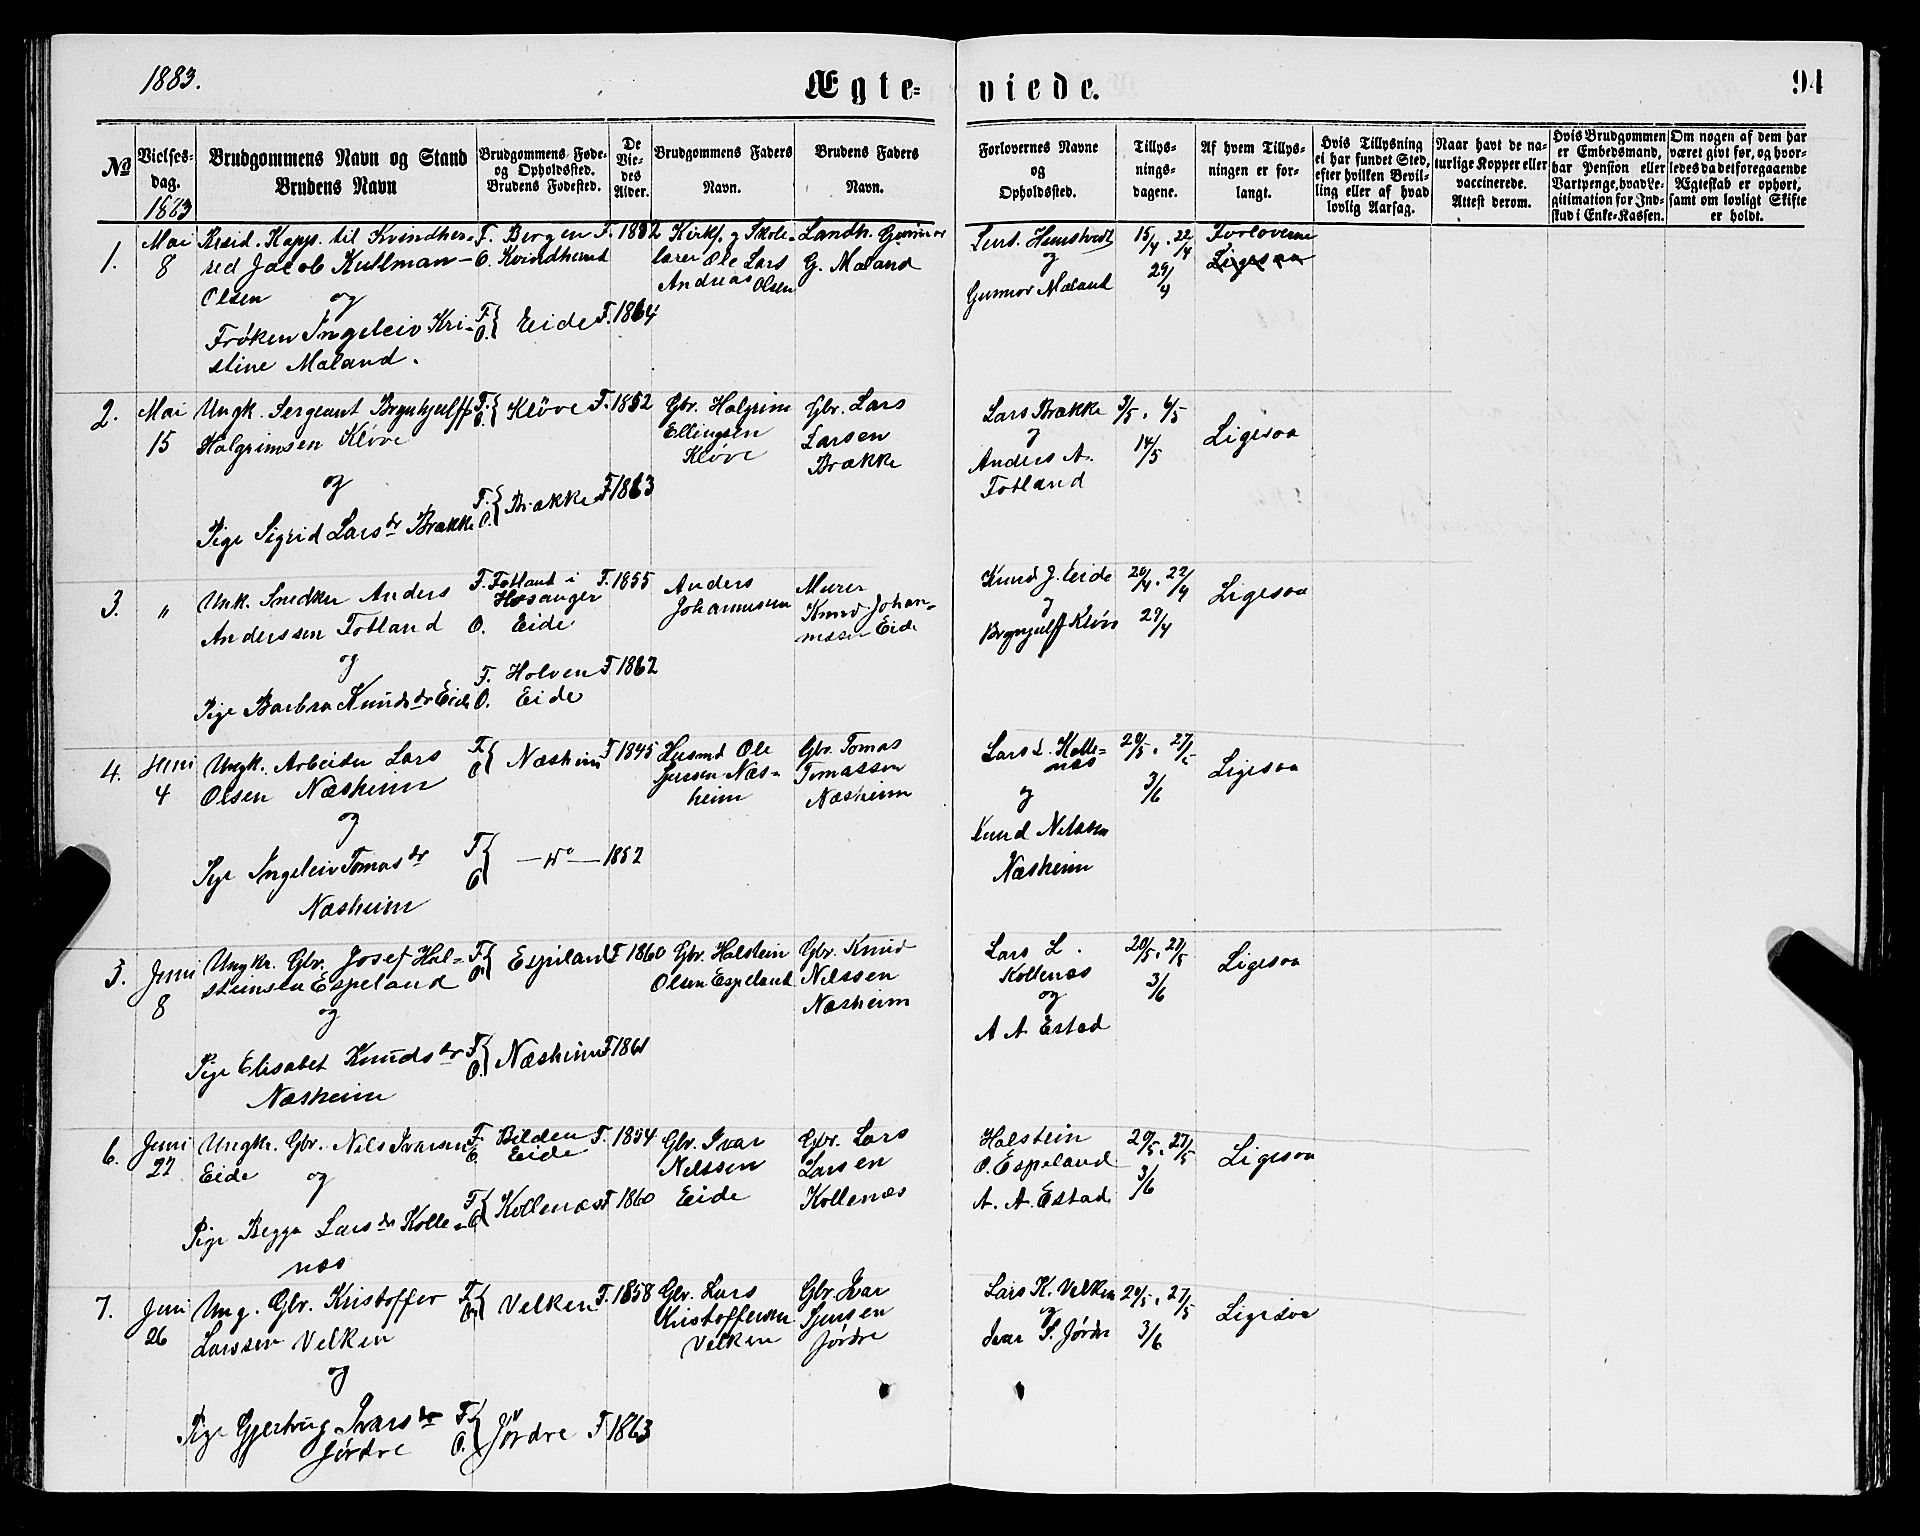 1883.
Ægte-
viede.
94
No
Vielses-
dag.
1883
Brudgommens Navn og Stand
Brudens Navn
Brudgommens Føde-
og Opholdssted.
Brudens Fødested.
De
Vie-
des
Alder.
Brudgommens Faders
Navn.
Brudens Faders
Navn.
Forlovernes Navne
og
Opholdssted.
Tillys-
nings-
dagene.
Af hvem Tillys-
ningen er for-
langt.
Hvis Tillysning
ei har fundet Sted,
efter hvilken Bevil-
ling eller af hvad
lovlig Aarsag.
Naar havt de na-
turlige Kopper eller
vaccinerede.
Attest derom.
Hvis Brudgommen
er Embedsmand,
har Pension eller
Vartpenge, hvad Le-
gitimation for Ind-
skud i Enke-Kassen.
Om nogen af dem har
været givt før, og hvor-
ledes da det foregaaende
Ægteskab er ophørt,
samt om lovligt Skifte
er holdt.
1.
Mai
8
Resid. Kaps. til Kvindher-
red Jacob Kullman-
Olsen og
Frøken Ingeleiv Kri-
stine Maland.
F. Bergen
O. Kvindherred
F. O. Eide
F. 1852
F. 1864
Kirks. og Skole-
lærer Ole Lars
Andreas Olsen
Landh. Gunnar
G. Maland
Hamstvedt
og
Gunnor Maland
15/4, 22/4
29/4
Forloverne
Ligesaa
2.
Mai
15
Ungk. Sergeant Brynhjulff
Halgrimsen Kløve
og
Pige Sigrid Larsdr Brække
F. O. Kløve
F. O. Brække
F. 1852
F. 1863
Gbr. Halgrim
Ellingsen
Kløve
Gbr. Lars
Larsen
Brække
Lars Brække
og
Anders A.
Fotland
3/5, 6/5
14/5
Ligesaa
3.
"
Unk. Snedker Anders
Anderssen Fotland
og
Pige Barbra Knudsdr Eide
F. Fotland i
Hosanger
O. Eide
F. Holven
O. Eide
F. 1855
F. 1862
Anders
Johannesen
Murer
Knud Johan-
nesen Eide
Knud J. Eide
og
Brynjulff Kløve
20/4, 22/4
29/4
Ligesaa
4.
Juni
4
Ungk. Arbeider Lars
Olsen Næsheim
og
Pige Ingeleiv Tomasdr
Næsheim
F. O. Næsheim
F. O. — do —
F. 1845
1852
Husmd Ole
Sjursen Næs-
heim
Gbr. Tomas
Tomassen
Næsheim
Lars L. Kolle-
næs
og
Knud Nilssen
Næsheim
20/5, 27/5
3/6
Ligesaa
5.
Juni
8
Ungkr. Gbr. Josef Hal-
steinsen Espeland
og
Pige Elisabet Knudsdr
Næsheim
F. O. Espeland
F. O. Næsheim
F. 1860
F. 1861
Gbr. Halstein
Olsen Espeland
Gbr. Knud
Nilssen
Næsheim
Lars L.
Kollenæs
og
A. A. Estad
20/5, 27/5
3/6
Ligesaa
6.
Juni
22
Ungkr. Gbr. Nils Ivarsen
Eide og
Pige Begga Larsdr Kolle-
næs
F. Bilden
O. Eide
F. O. Kollenæs
F. 1854
F. 1860
Gbr. Ivar
Nilssen
Eide
Gbr. Lars
Larsen
Kollenæs
Halstein
O. Espeland
A. A. Estad
20/5, 27/5
3/6
Ligesaa
7.
Juni
26
Ung. Gbr. Kristoffer
Larssen Velken
og
Pige Gjertrug Ivarsdr
Jørdre
F. O. Velken
F. O. Jørdre
F. 1858
F. 1863
Gbr. Lars
Kristoffersen
Velken
Gbr. Ivar
Sjursen
Jørdre
Lars K. Velken
og
Ivar S. Jørdre
20/5, 27/5
3/6
Ligesaa